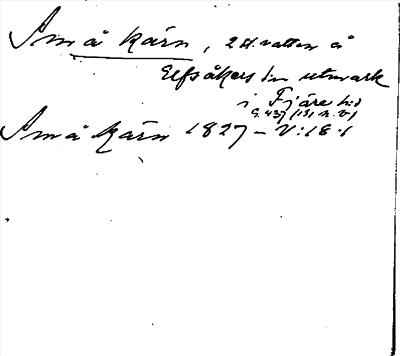 Små kärn, 2 st. vatten å
Elfsåkers bys utmark
i Fjäre hd
G. 437 (151 n. v)
Små kärn 1827 – V:18.1